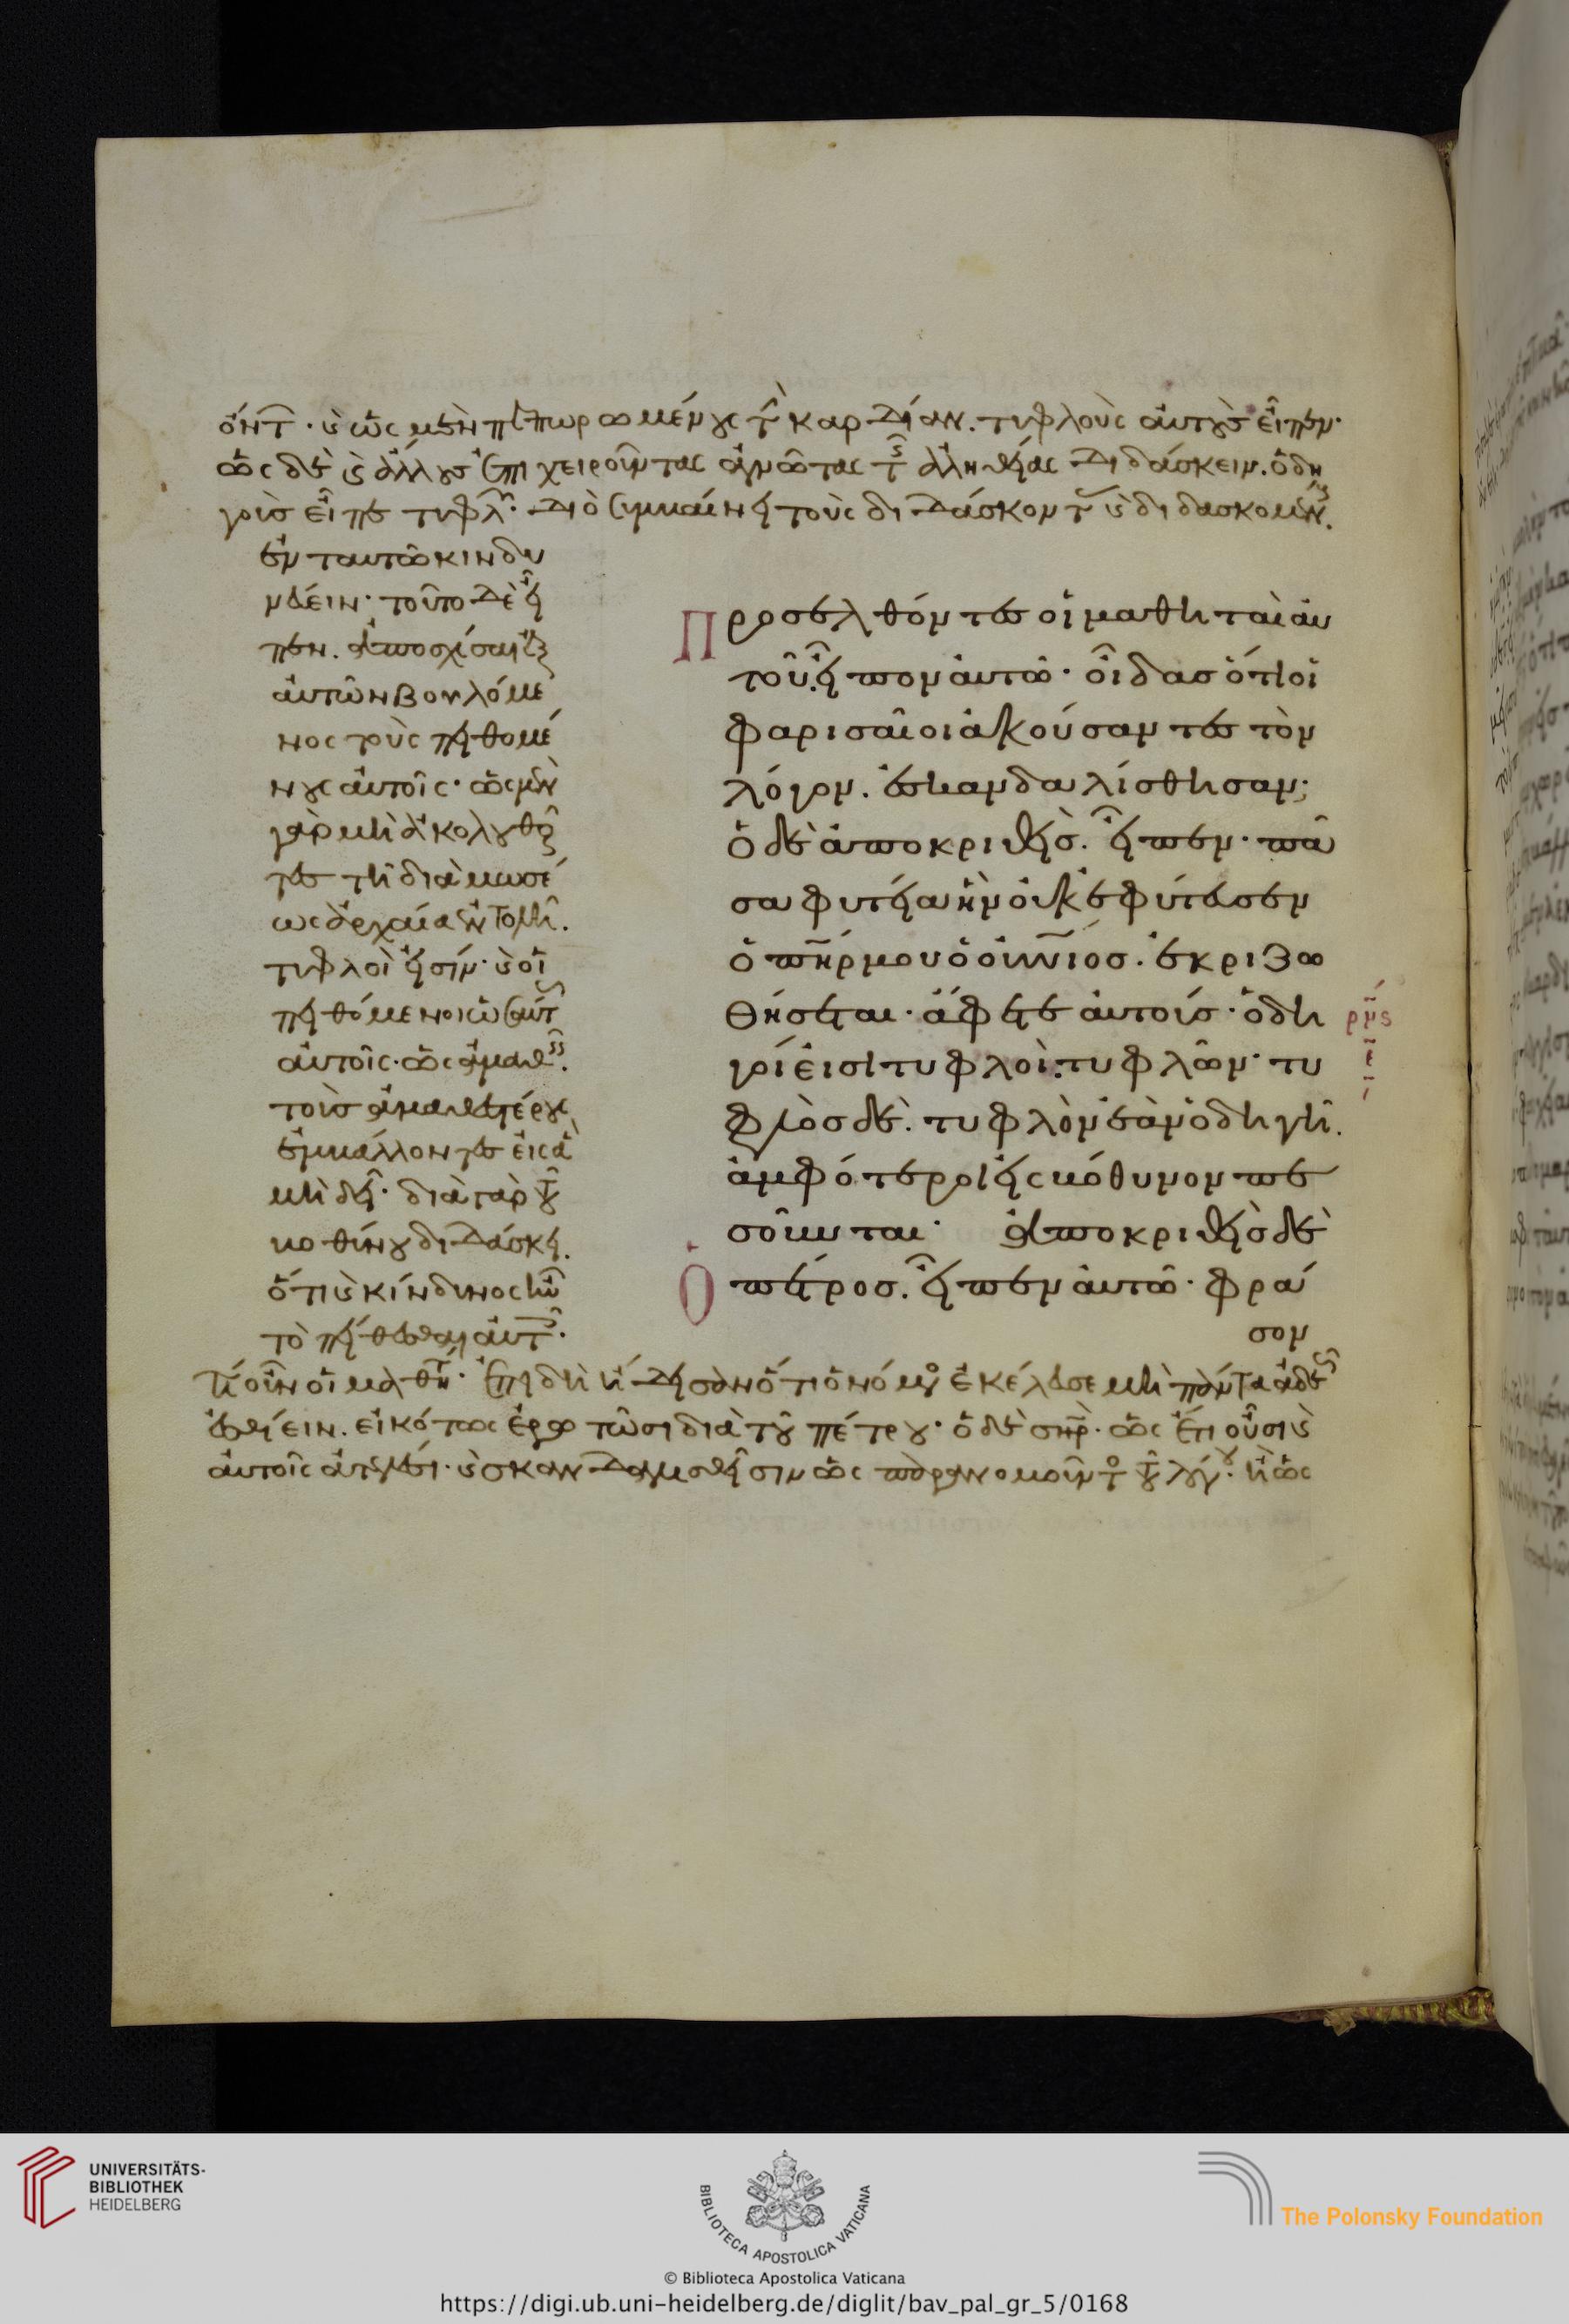 ὄντ(ας)· καὶ ὡς μὲν πεπωρωμένους τὴν καρδίαν. τυφλοὺς αὐτοὺς εἶπεν·
ὡς δὲ καὶ ἄλλους ἐπιχειροῦντας ἀγνῶτας τῆς ἀληθείας διδάσκειν. ὁδη
γοὺς εἶπε τυφλῶν· διὸ συμβαίνει τοὺς διδάσκοντας καὶ διδασκομένους.
ἐν ταυτῶ κινδυ
νεύειν· τοῦτο δὲ εἶ
πεν. ἀποσχίσαι ἐξ
αὐτῶν βουλόμε
νος τοὺς πειθομέ
νους αὐτοῖς· ὡς μὲν
γὰρ μὴ ἀκολουθοῦν
τες τῆ διὰ μωσέ
ως ἀρχαία ἐντολῆ.
τυφλοὶ εἰσίν· καὶ οἱ
πειθόμενοι
αὐτοῖς· ὡς ἀμαθεῖς.
τοῖς ἀμαθεστέρους
ἐμβάλλοντες εἰς ἃ
μὴ δεῖ· διὰ γὰρ τοῦ
βοθύνου διδάσκει.
ὅτι καὶ κίνδυνος ἦν
τὸ πείθεσθαι αὐτοῖς·
Προσελθόντες οἱ μαθηταὶ αὐ
τοῦ. εἶπον αὐτῶ· οἶδας ὅτι οἱ
φαρισαῖοι ἀκούσαντες τὸν
λόγον. ἐσκανδαλίσθησαν;
ὁ δὲ ἀποκριθεὶς. εἶπεν· πᾶ
σα φυτεία ἣν οὐκ ἐφύτευσεν
ὁ π̅η̅ρ μου ὁ ο̅υ̅ν̅ιος. ἐκριζω
θήσεται· ἄφετε αὐτούς· ὁδη
γοί εἰσι τυφλοὶ. τυφλῶν· τυ
φλὸς δὲ. τυφλὸν ἐὰν ὁδηγῆ.
ἀμφότεροι εἰς βόθυνον πε
σοῦνται· ἀποκριθεὶς δὲ
Ὁ πέτρος. εἶπεν αὐτῶ· φρά
σον
ρ̅ν̅ς
ε̅
Τί οὖν οἱ μαθηταί· ἐπειδὴ ἤδεισαν ὅτι ὁ νόμος ἐκέλευσε μὴ πάντα ἀδεῶς
ἐσθίειν. εἰκότως ἐρωτῶσι διὰ τοῦ πέτρου· ὁ δὲ σ̅η̅ρ. ὡς ἔτι οὖσι καὶ
αὐτοῖς ἀτελέσι· καὶ σκανδαλισθεῖσιν ὡς παρανομοῦντος τοῦ λόγου· ἢ ὡς
UNIVERSITÄTS-
BIBLIOTHEK
HEIDELBERG
BIBLIOTECA APOSTOLICA VATICANA
The Polonsky Foundation
© Biblioteca Apostolica Vaticana
https://digi.ub.uni-heidelberg.de/diglit/bav_pal_gr_5/0168